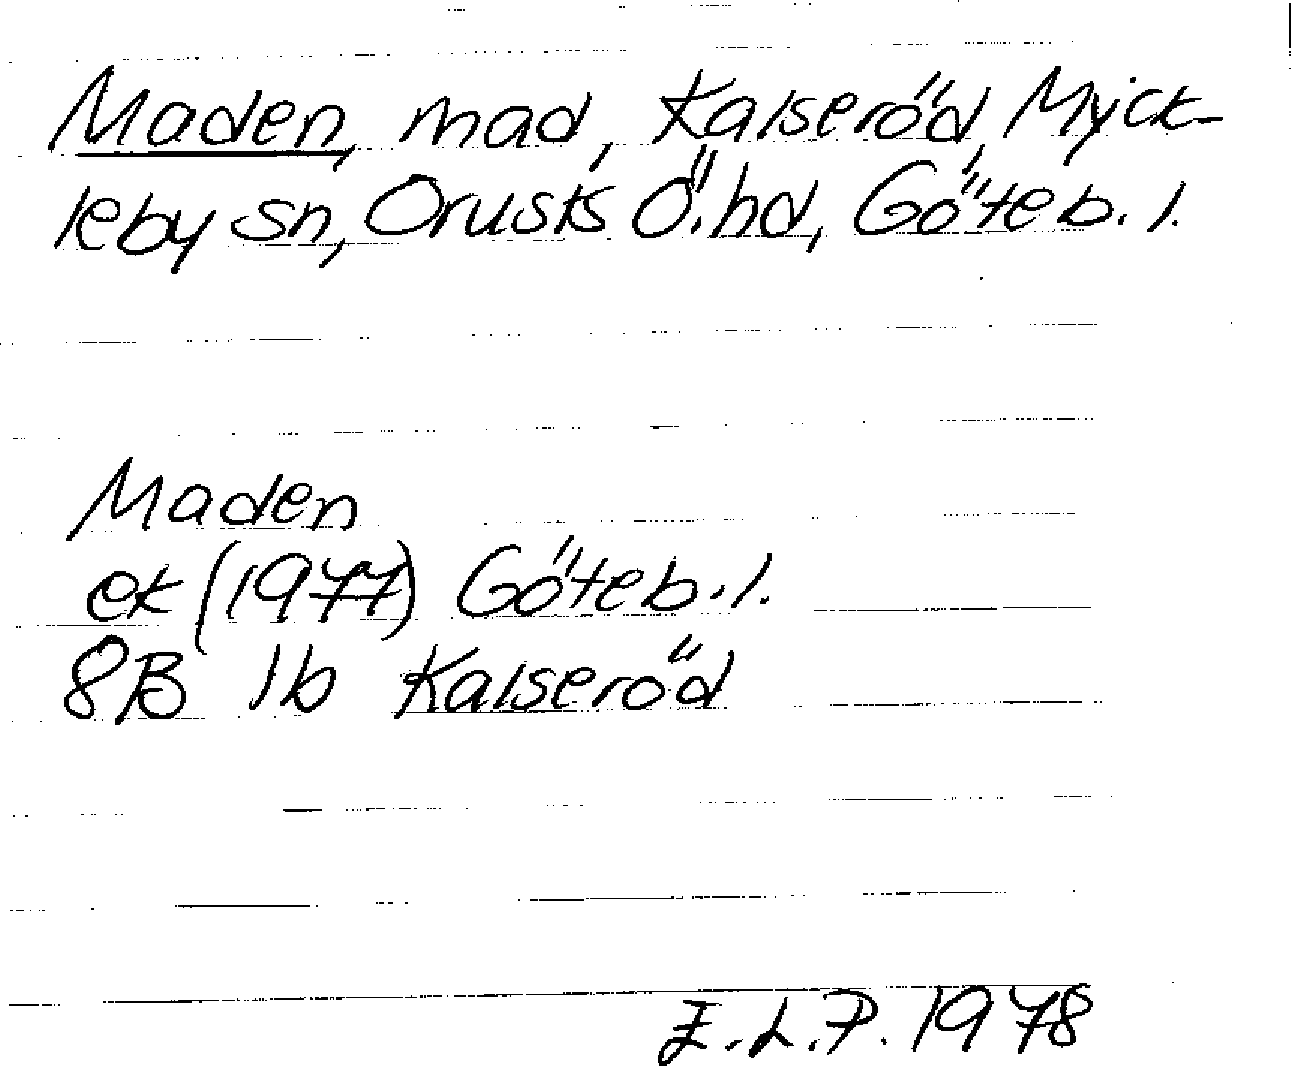 Maden, mad, Kalseröd, Myck-
leby sn, Orusts Ö. hd, Göteb. l.
Maden
ek (1977) Göteb. l.
8B 1b Kalseröd
E.L.P. 1978